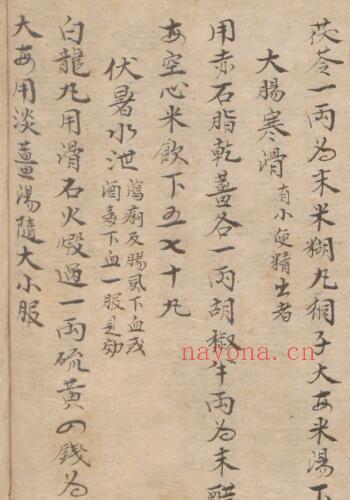 茯苓一兩為末米糊丸桐子大每米湯下
大腸寒滑有小便精出者
用赤石脂乾薑各一兩胡椒半兩為末醋
每空心米飲下五七十丸
伏暑水泄瀉痢及腸風下血或酒毒下血一服見効
白龍丸用滑石火煅過一兩硫黃四錢為
大每用淡薑湯隨大小服
nayona.cn